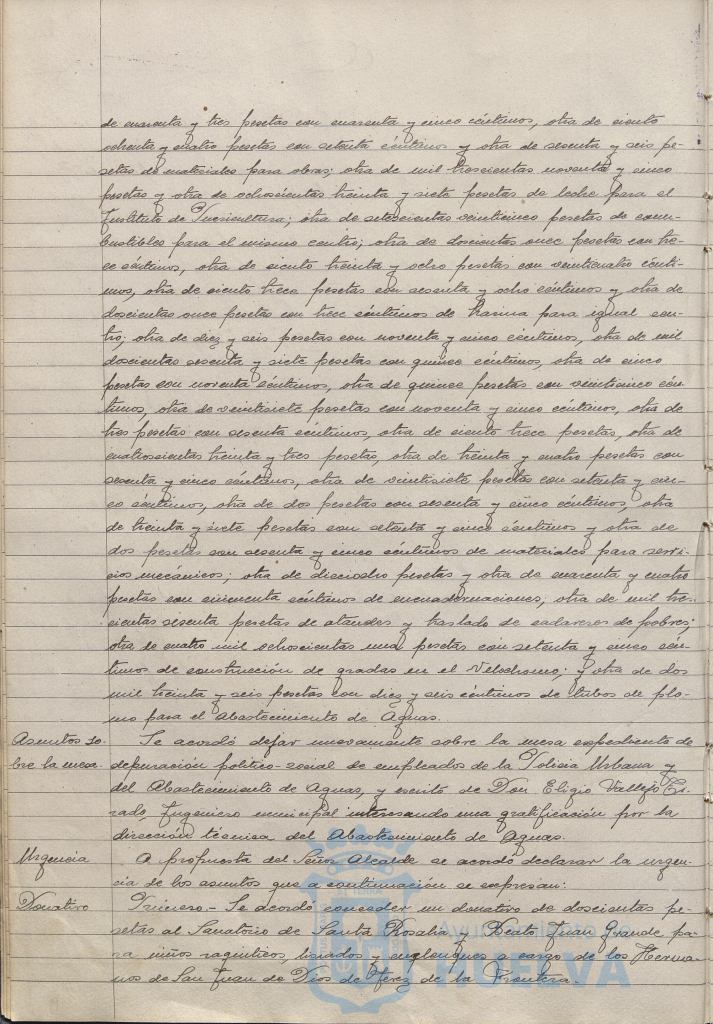 de cuarenta y tres pesetas con cuarenta y cinco céntimos, otra de ciento
ochenta y cuatro pesetas con setenta céntimos y otra de sesenta y seis pe-
setas de materiales para obras; otra de mil trescientas noventa y cinco
pesetas y otra de ochocientas treinta y siete pesetas de leche para el
Instituto de Puericultura; otra de setecientas veinticinco pesetas de com-
bustibles para el mismo centro; otra de doscientas once pesetas con tre-
ce céntimos, otra de ciento treinta y ocho pesetas con veinticuatro cénti-
mos, otra de ciento trece pesetas con sesenta y ocho céntimos y otra de
doscientas once pesetas con trece céntimos de harina para igual cen-
tro; otra de diez y seis pesetas con noventa y cinco céntimos, otra de mil
doscientas sesenta y siete pesetas con quince céntimos, otra de cinco
pesetas con noventa céntimos, otra de quince pesetas con veinticinco cén-
timos, otra de veintisiete pesetas con noventa y cinco céntimos, otra de
tres pesetas con sesenta céntimos, otra de ciento trece pesetas, otra de
cuatrocientas treinta y tres pesetas, otra de treinta y cuatro pesetas con
sesenta y cinco céntimos, otra de veintisiete pesetas con setenta y cin-
co céntimos, otra de dos pesetas con sesenta y cinco céntimos, otra
de treinta y siete pesetas con setenta y cinco céntimos y otra de
dos pesetas con sesenta y cinco céntimos de materiales para servi-
cios mecánicos; otra de dieciocho pesetas y otra de cuarenta y cuatro
pesetas con cincuenta céntimos de encuadernaciones; otra de mil tres-
cientas sesenta pesetas de ataudes y traslado de cadaveres de pobres;
otra de cuatro mil ochocientas una pesetas con setenta y cinco cén-
timos de construcción de gradas en el Velodromo; y otra de dos
mil treinta y seis pesetas con diez y seis céntimos de tubos de plo-
mo para el Abastecimiento de Aguas.
Asuntos so-
bre la mesa.
Se acordó dejar nuevamente sobre la mesa expediente de
depuración político-social de empleados de la Policia Urbana y
del Abastecimiento de Aguas, y escrito de Don Eligio Vallejo Ti-
rado, Ingeniero municipal interesando una gratificación por la
dirección técnica del Abastecimiento de Aguas.
Urgencia
A propuesta del Señor Alcalde se acordó declarar la urgen-
cia de los asuntos que a continuación se expresan:
Donativo
Primero.- Se acordó conceder un donativo de doscientas pe-
setas al Sanatorio de Santa Rosalia y Beato Juan Grande pa-
ra niños raquíticos, lisiados y enclenques a cargo de los Herma-
nos de San Juan de Dios de Jerez de la Frontera.
HUELVA